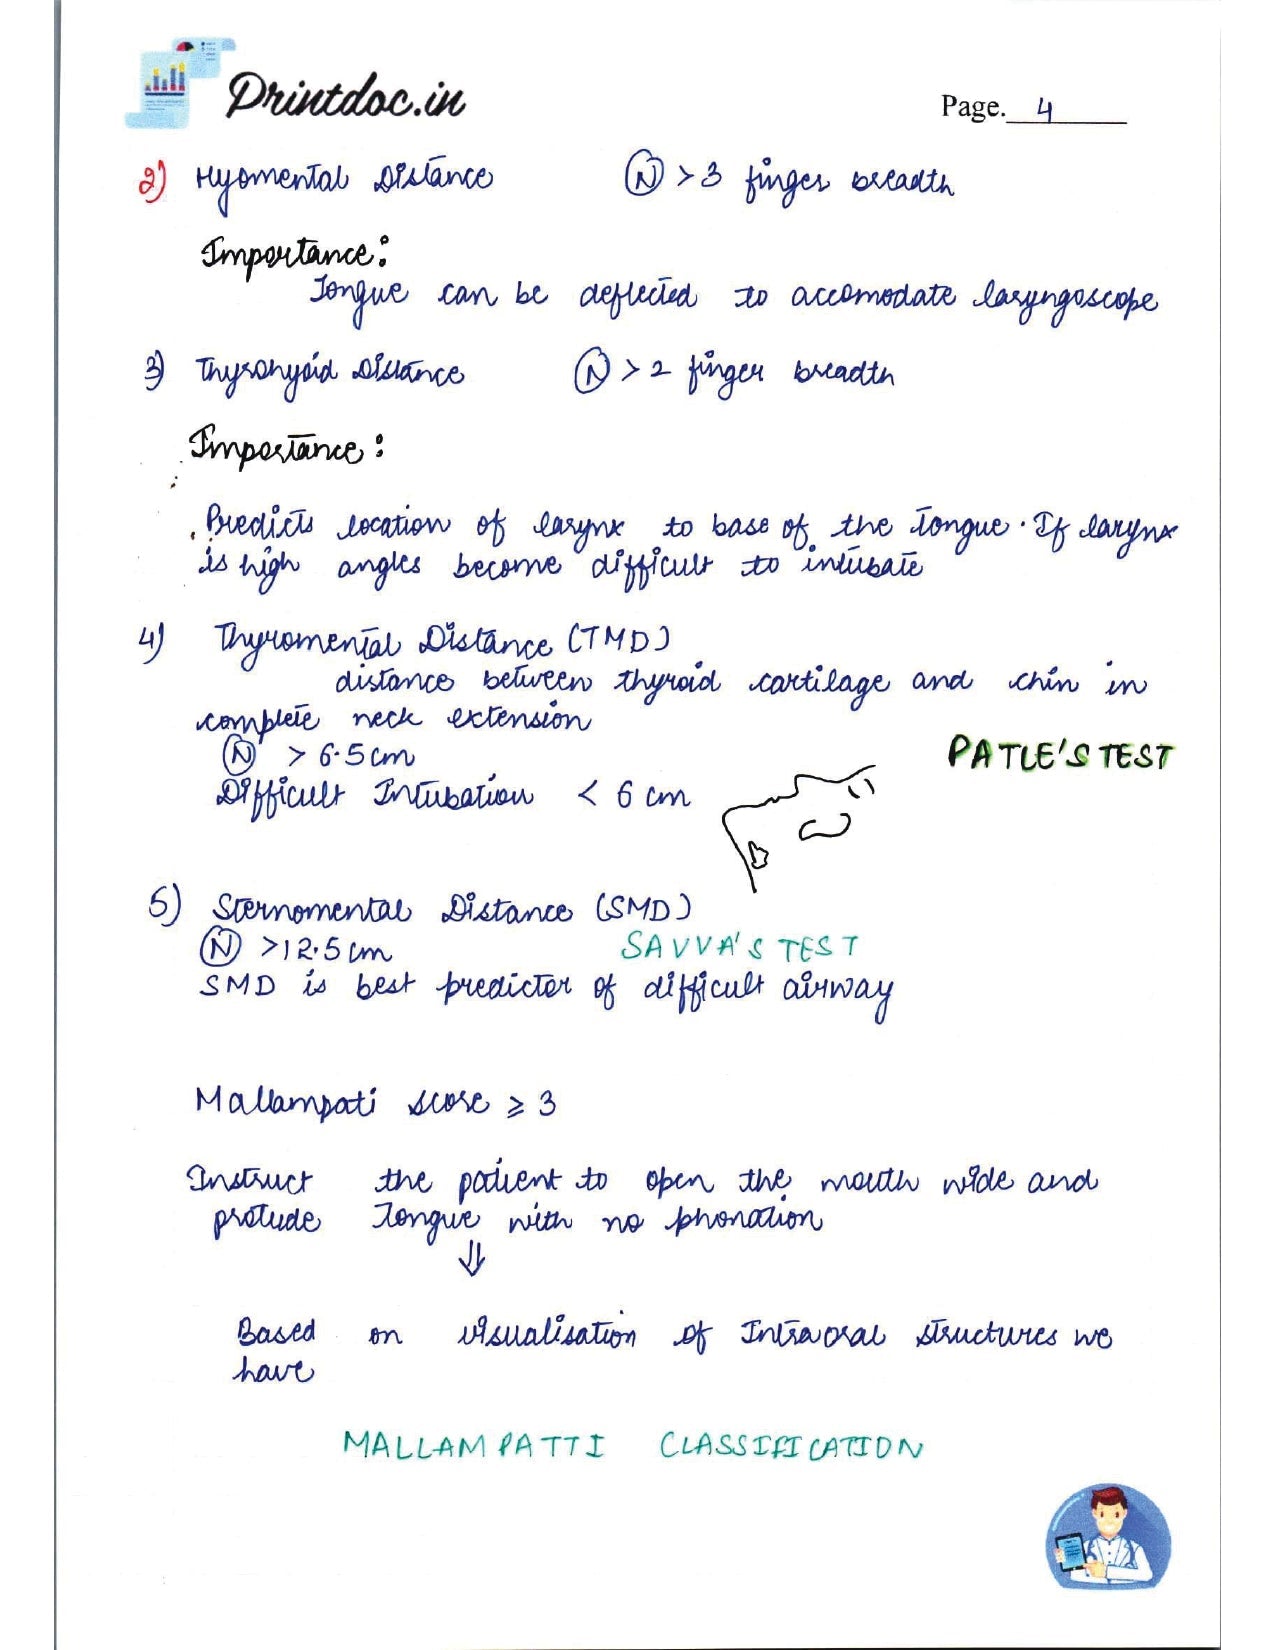 Printdoc.in
Page. 4
2) Hyomental Distance (N) > 3 finger breadth
Importance:
Tongue can be deflected to accomodate laryngoscope
3) Thyrohyoid Distance (N) > 2 finger breadth
Importance:
Predicts location of larynx to base of the tongue. If larynx
is high angles become difficult to intubate
4) Thyromental Distance (TMD)
distance between thyroid cartilage and chin in
complete neck extension
(N) > 6.5 cm
PATLE'S TEST
Difficult Intubation < 6 cm
5) Sternomental Distance (SMD)
(N) >12.5 cm SAVVA'S TEST
SMD is best predictor of difficult airway
Mallampati score ≥ 3
Instruct the patient to open the mouth wide and
protude Tongue with no phonation
⇓
Based on visualisation of Intraoral structures we
have
MALLAMPATTI CLASSIFICATION